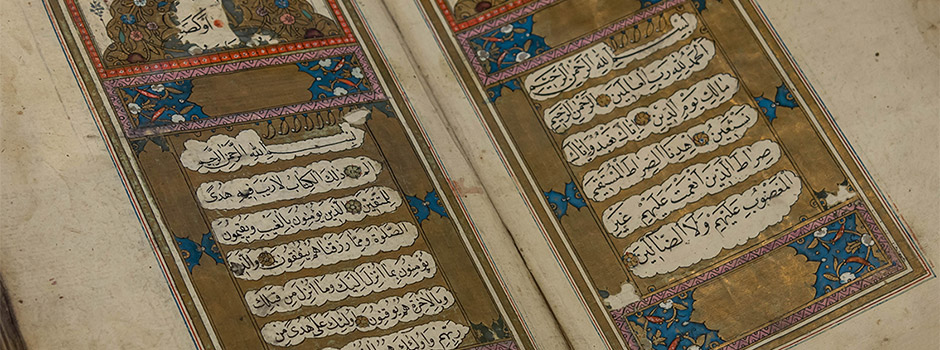 بسم الله الرحمن الرحيم
الحمد لله رب العالمين الرحمن الرحيم
مالك يوم الدين اياك نعبد واياك
نستعين اهدنا الصراط المستقيم
صراط الذين انعمت عليهم غير
المغضوب عليهم ولا الضالين
بسم الله الرحمن الرحيم
ذلك الكتاب لا ريب فيه هدى
للمتقين الذين يؤمنون بالغيب ويقيمون
الصلوة ومما رزقناهم ينفقون والذين
يؤمنون بما انزل اليك وما انزل من قبلك
وبالاخرة هم يوقنون اولئك على هدى من
ربهم واولئك هم